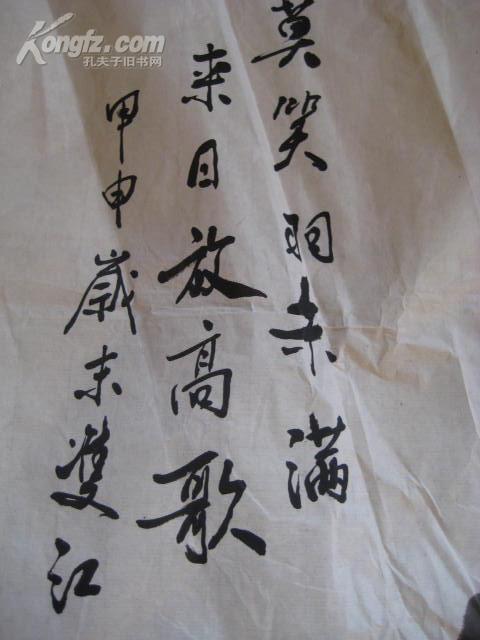 Kongfz.com
孔夫子旧书网
莫笑羽未满
来日放高歌
甲申歲末雙江